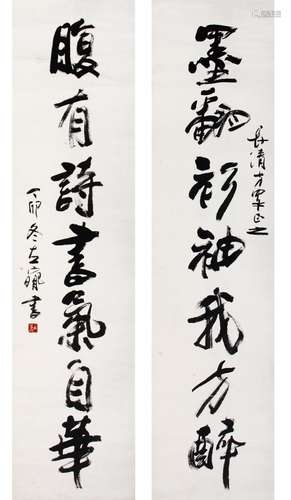 長清方家正之
墨翻衫袖我方醉
腹有詩書氣自華
丁卯冬左書